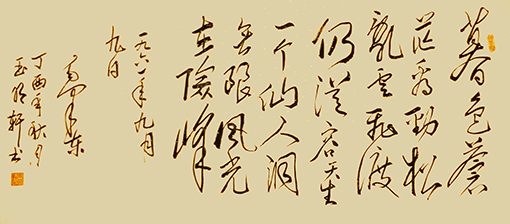 暮色蒼
茫看勁松
亂雲飛渡
仍從容天生
一个仙人洞
無限風光
在險峰
一九六一年九月
九日
毛澤東
丁酉年秋月